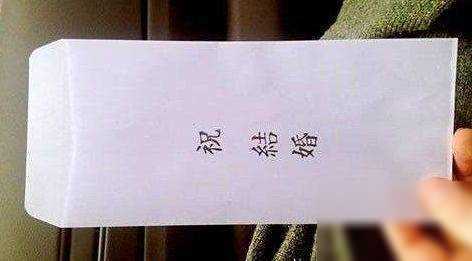 祝 結婚